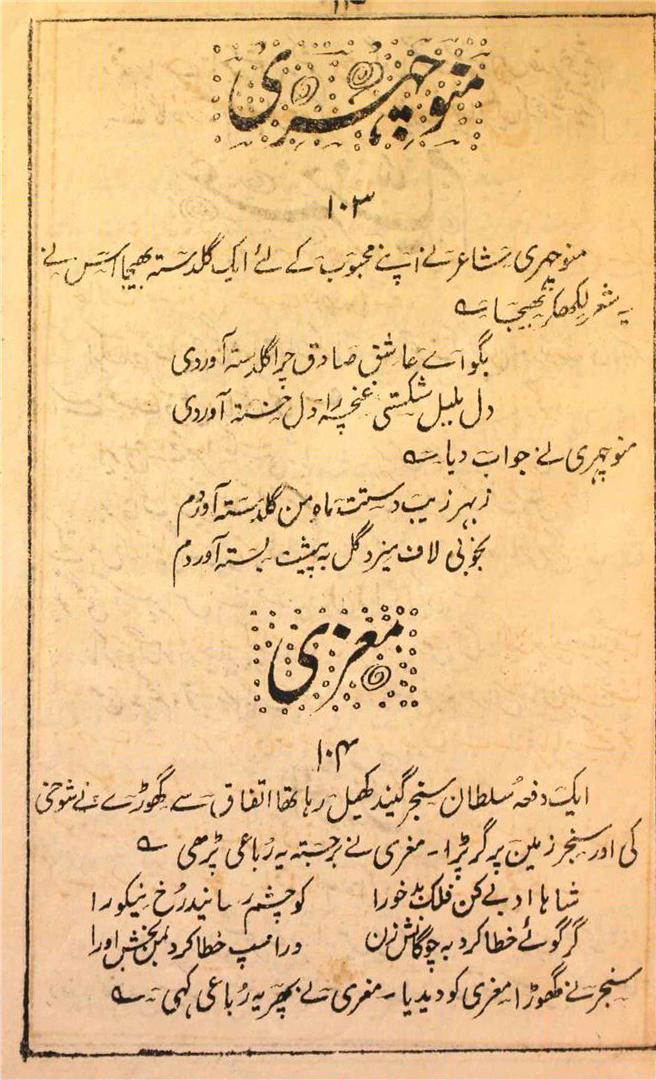 منوچہری
۱۰۳
منوچہری شاعر نے اپنے محبوب کے لئے ایک گلدستہ بھیجا اس نے
یہ شعر لکھکر بھیجا ے
بگو اے عاشق صادق چرا گلدستہ آوردی
دل بلبل شکستی غنچہ را دل خستہ آوردی
منوچہری نے جواب دیا ے
زبہر زیب دستت ماہ من گلدستہ آوردم
بخوبی لاف میزد گل بہ پیشت بستہ آوردم
معزی
۱۰۴
ایک دفعہ سلطان سنجر گیند کھیل رہا تھا اتفاق سے گھوڑے نے شوخی
کی اور سنجر زمین پر گر پڑا ۔ مغری نے برجستہ یہ رباعی پڑھی ے
شاہا ادبے کن فلک بدخورا کو چشم رسانید رخ نیکورا
گر گوئے خطا کرد بہ چوگانش زن ور اسپ خطا کرد بمن بخش اورا
سنجر نے گھوڑا مغری کو دیدیا ۔ مغری نے پھر یہ رباعی کہی ۔ ے